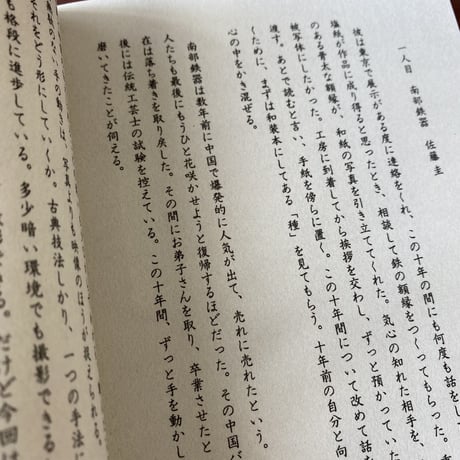 一人目　南部鉄器　佐藤圭
彼は東京で展示がある度に連絡をくれ、この十年の間にも何度も話をし
塩紙が作品に成り得ると思ったとき、相談して鉄の額縁をつくってもらった。
のある書大な額縁が、和紙の写真を引き立ててくれた。気心の知れた相手を、
被写体にしたかった。工房に到着してから挨拶を交わし、ずっと預かっていた
渡す。あとで読むと言い、手紙を傍らに置く。この十年間について改めて話を
くために、まずは和装本にしてある「種」を見てもらう。十年前の自分と向
心の中をかき混ぜる。
南部鉄器は数年前に中国で爆発的に人気が出て、売れに売れたという。
人たちも最後にもうひと花咲かせようと復帰するほどだった。その中国が
在は落ち着きを取り戻した。その間にお弟子さんを取り、卒業させたと
後には伝統工芸士の試験を控えている。この十年間、ずっと手を動かし
磨いてきたことが伺える。
のない手の動きは、写真よりも映像のほうが捉えられる。
それをどう形にしていくか。古典技法しかり、一つの手法に
も格段に進歩している。多少暗い環境でも撮影できる
だけど今回は